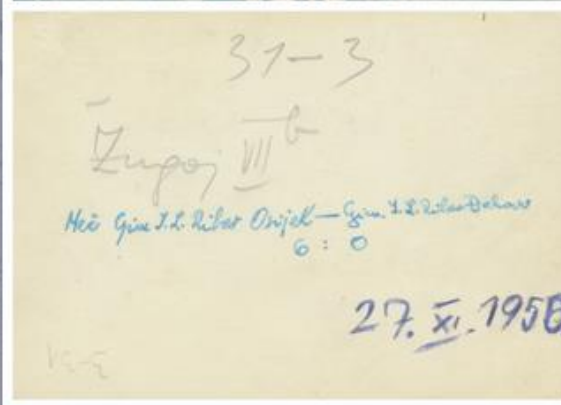 31-3
Žugaj VII b
Meč Gim. I. L. Ribar Osijek — Gim. I. L. Ribar
6 : 0
27. XI. 1956